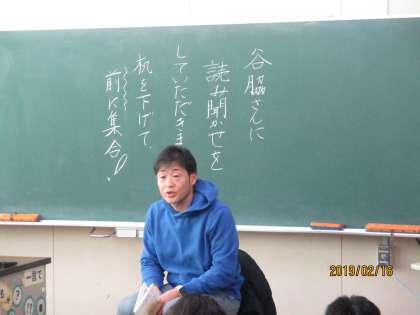 谷脇さんに
読み聞かせを
していただきま
机を下げて、
前に集合!
2019/02/16